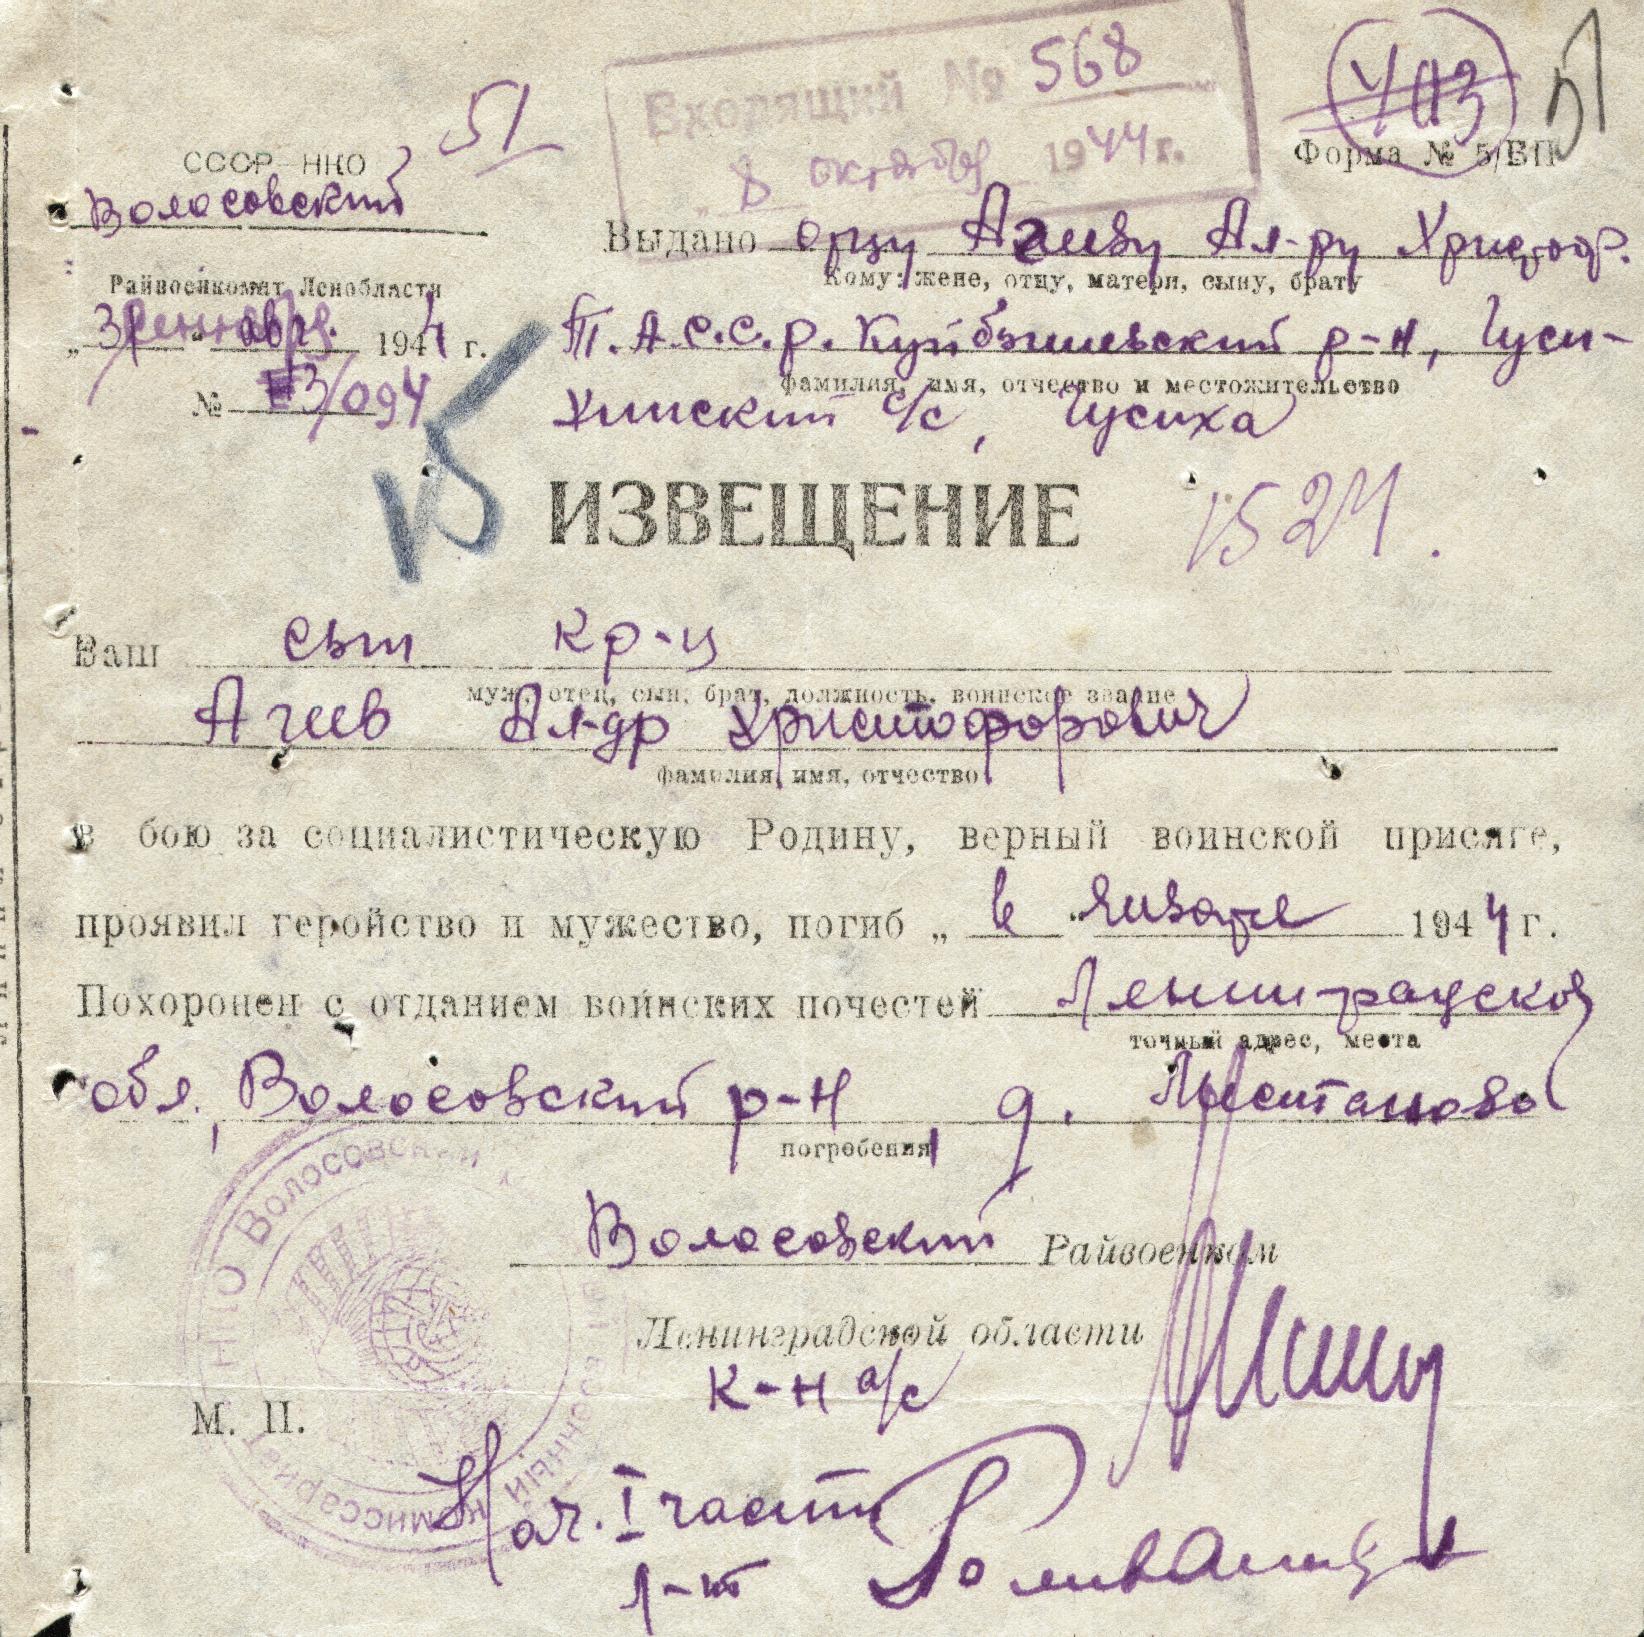 51
Входящий № 568
8 октября 1944 г.
51
СССР НКО
Форма № 5/БП
Волосовский
Выдано отцу Агееву Ал-ру Христоф.
Кому: жене, отцу, матери, сыну, брату
Райвоенкомат Ленобласти
Т.А.С.С.Р. Куйбышевский р-н, Гуси-
1944 г.
фамилия, имя, отчество и местожительство
№ 3/094
хинский с/с, Гусиха
15
ИЗВЕЩЕНИЕ
1524.
Ваш сын кр-ц
муж, отец, сын, брат, должность, воинское звание
Агеев Ал-др Христофорович
фамилия, имя, отчество
в бою за социалистическую Родину, верный воинской присяге,
проявил геройство и мужество, погиб „ в " январе 1944 г.
Похоронен с отданием воинских почестей Ленинградской
точный адрес, места
обл., Волосовский р-н, д.
погребения
Волосовский Райвоенком
Ленинградской области
к-н а/с
М. П.
НКО Волосовский Районный Военный Комиссариат
Нач. I части
л-т